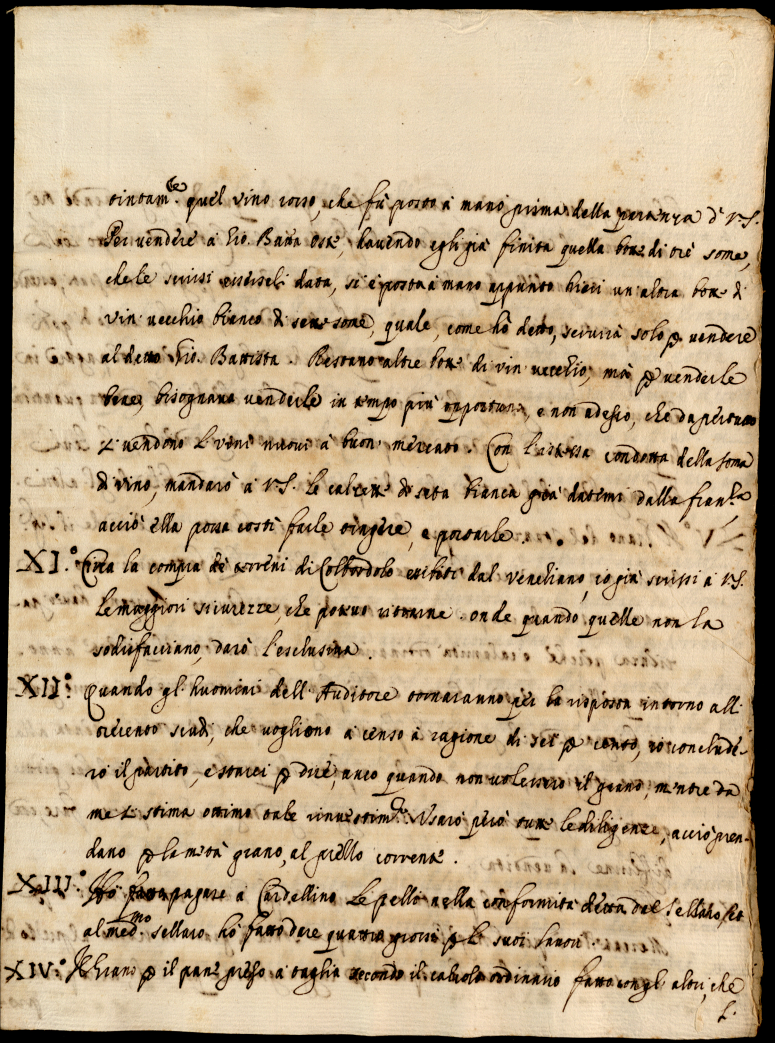 tintam.te quel vino rosso, che fù posto à mano prima della partenza di V.S.
Per vendere à Gio. Batta Oste, havendo egli già finita quella botte di trè some,
che le scrissi esserseli data, si è posta à mano appunto hieri un altra botte di
vin vecchio bianco di sette some, quale, come hò detto, servirà solo p vendere
al detto Gio. Battista. Restano altre botti di vin vecchio, mà p venderle
bene, bisognava venderle in tempo più opportuno, e non adesso, che da pertutto
si vendono li vini nuovi à buon mercato. Con l'istessa condotta della soma
di vino, mandarò à V.S. le calzette di seta bianca già datemi dalla Fran.ca
acciò ella possa costì farle tingere, e portarle.
XI.° Circa la compra de terreni di Colbordolo esibiti dal Veneziano, io già scrissi à V.S.
le maggiori sicurezze, che potevo ritrarne. onde quando quelle non la
sodisfacciano, darò l'esclusiva.
XII.° Quando gl'huomini dell'Auditore tornaranno per la risposta intorno all
trecento scudi, che vogliono à censo à ragione di sei p cento, io concludé-
rò il partito, e starei p dire, anco quando non volessero il grano, mentre da
me si stima ottimo tale rinvestim.to. Usarò però tutte le diligenze, acciò pren-
dano p la metà grano, al prezzo corrente.
XIII.° Hò fatto pagare à Cardellino le pelli nella conformità detta dal Sellaro, et
al med.mo sellaro hò fatto dare quattro grossi p li suoi lavori
XIV.° Il grano p il pane preso à taglia secondo il calcolo ordinario fatto con gl'altri, che